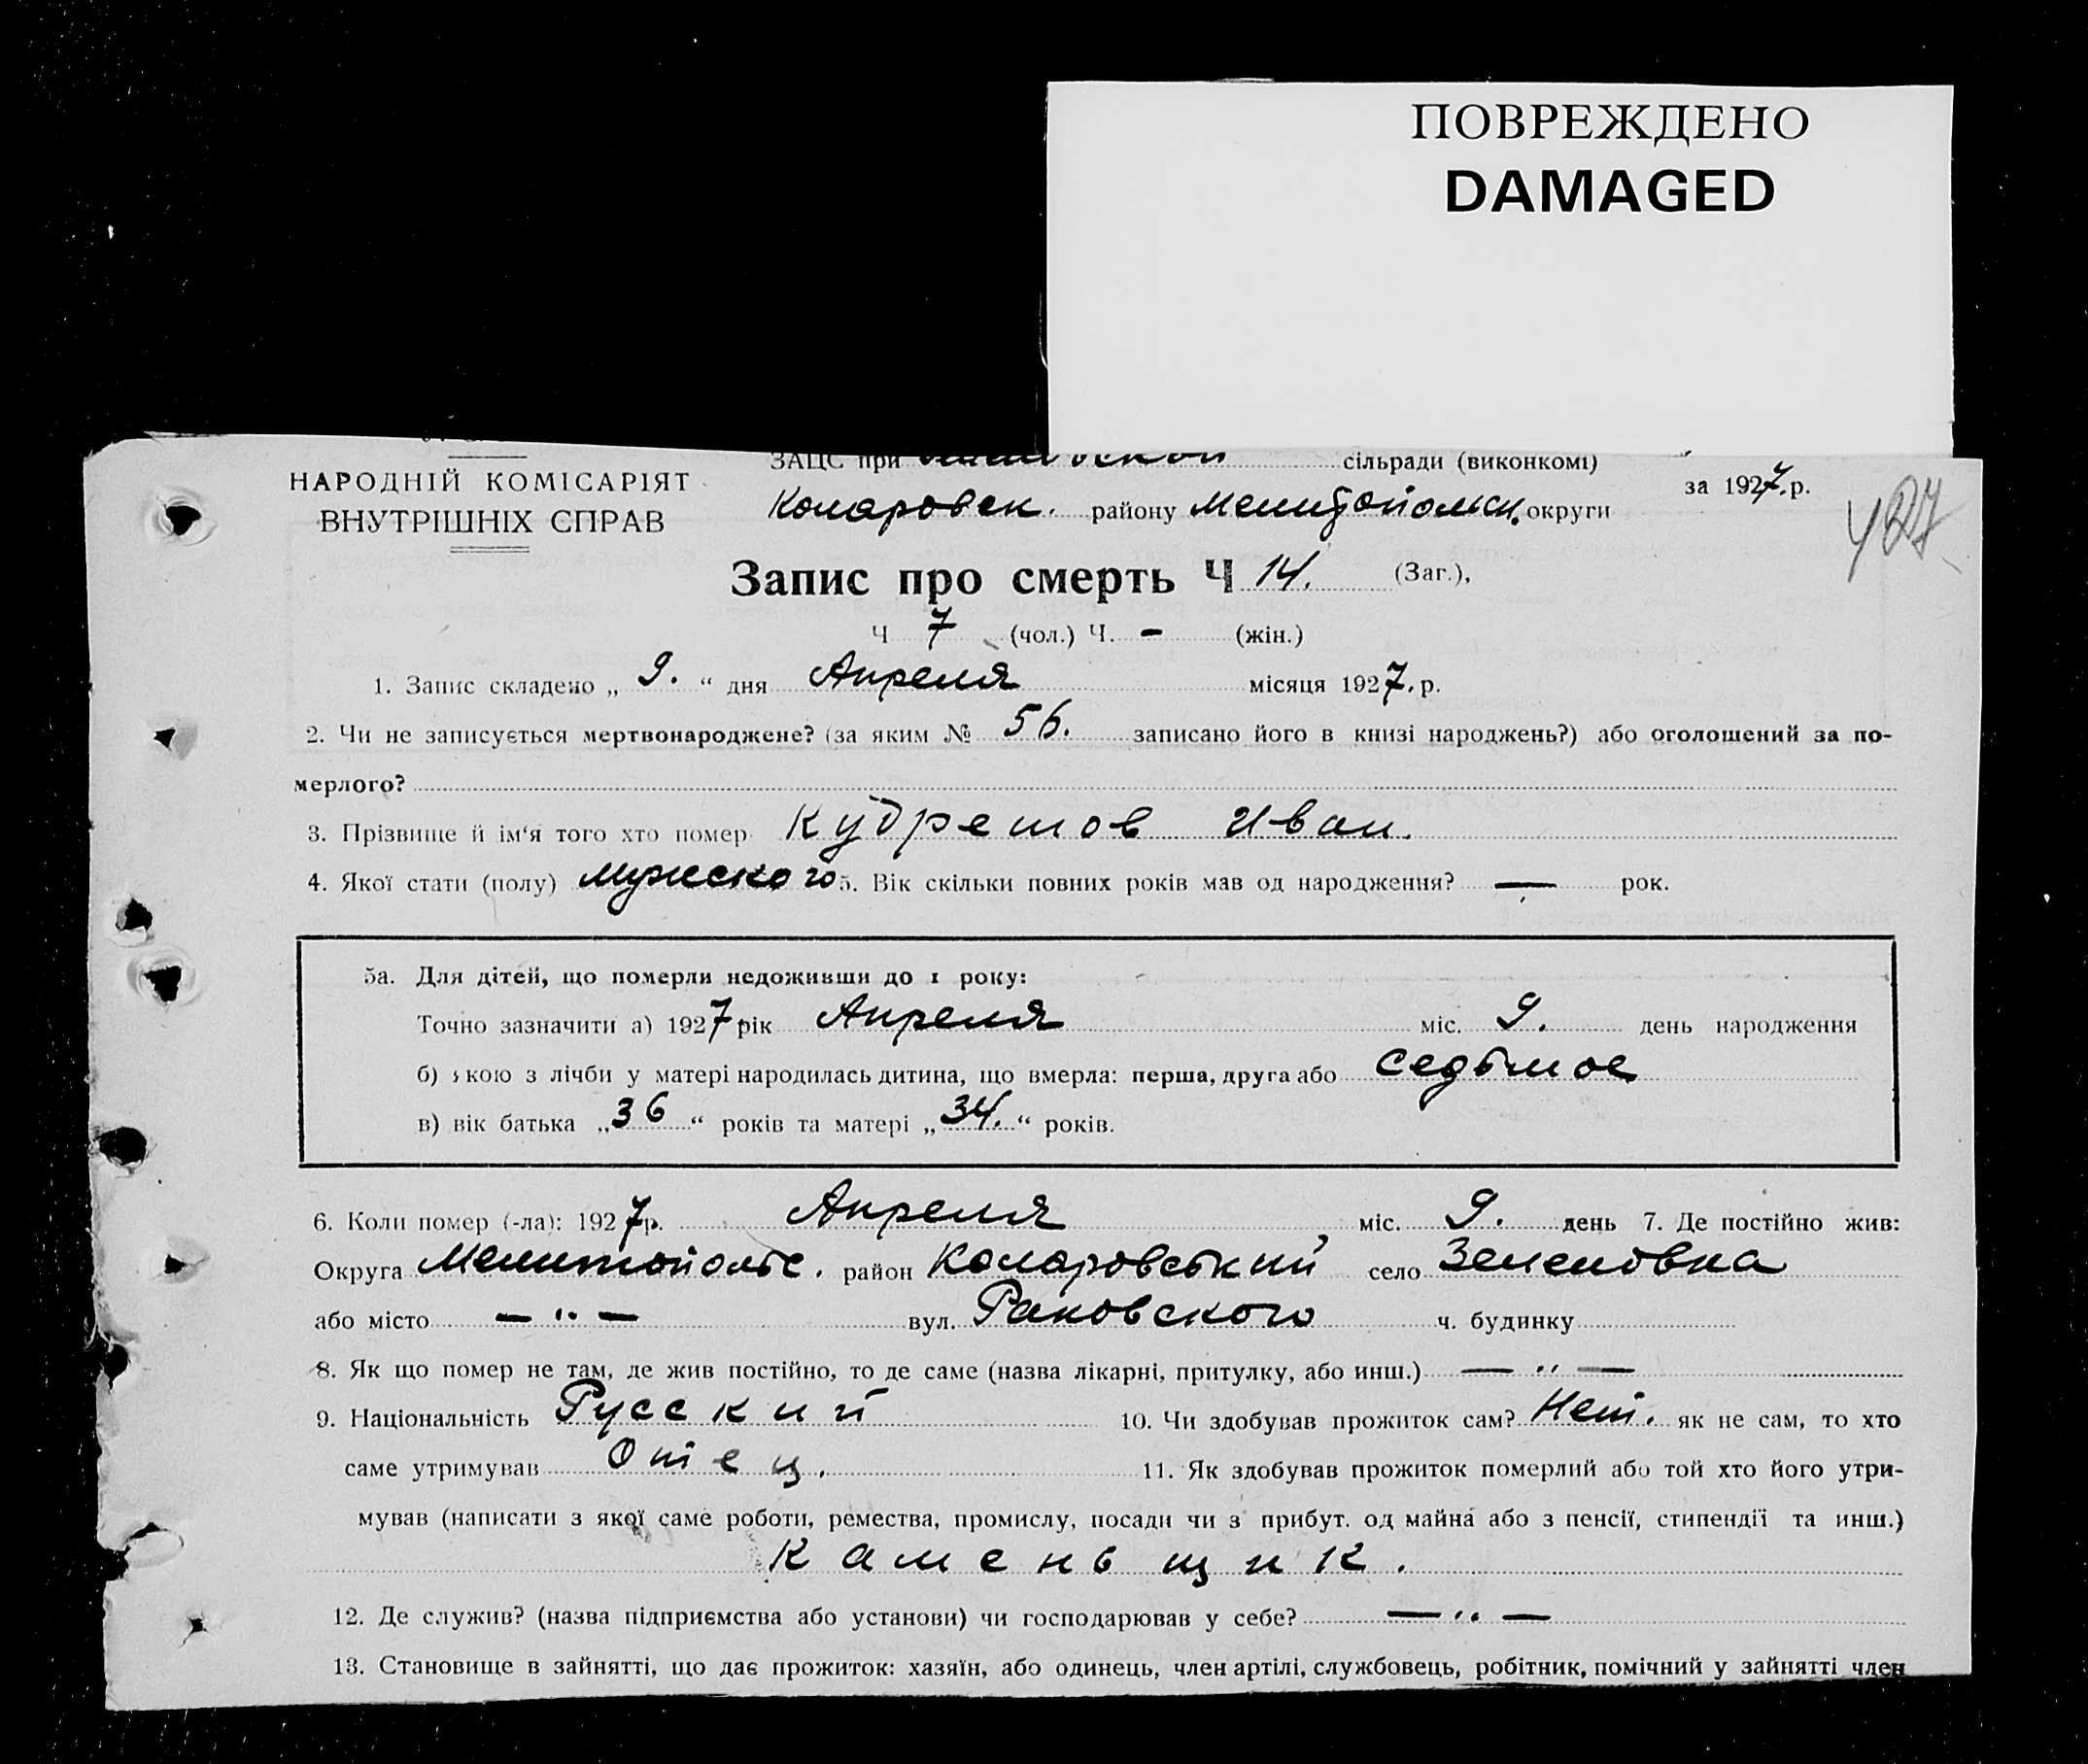 ПОВРЕЖДЕНО
DAMAGED
НАРОДНІЙ КОМІСАРІЯТ
ВНУТРІШНІХ СПРАВ
ЗАЦС при сільради (виконкомі)
Коларовск. району Мелитопольск. округи
за 1927. р.
427
Запис про смерть Ч 14. (Заг.),
Ч 7 (чол.) Ч. – (жін.)
1. Запис складено „ 9. “ дня Апреля місяця 1927. р.
2. Чи не записується мертвонароджене? (за яким № 56. записано його в книзі народжень?) або оголошений за по-
мерлого?
3. Прізвище й ім'я того хто помер Кудрешов Иван.
4. Якої стати (полу) мужского 5. Вік скільки повних років мав од народження? — рок.
5а. Для дітей, що померли недоживши до 1 року:
Точно зазначити а) 1927 рік Апреля міс. 9. день народження
б) якою з лічби у матері народилась дитина, що вмерла: перша, друга або седьмое
в) вік батька „36“ років та матері „34.“ років.
6. Коли помер (-ла): 1927 р. Апреля міс. 9. день 7. Де постійно жив:
Округа Мелитопольс. район Коларовський село Зеленовка
або місто — „ — вул. Раковского ч. будинку
8. Як що помер не там, де жив постійно, то де саме (назва лікарні, притулку, або инш.) — „ —
9. Національність Русский 10. Чи здобував прожиток сам? Нет. як не сам, то хто
саме утримував Отец. 11. Як здобував прожиток померлий або той хто його утри-
мував (написати з якої саме роботи, ремества, промислу, посади чи з прибут. од майна або з пенсії, стипендії та инш.)
Каменьщик.
12. Де служив? (назва підприємства або установи) чи господарював у себе? — „ —
13. Становище в зайнятті, що дає прожиток: хазяїн, або одинець, член артілі, службовець, робітник, помічний у зайнятті член